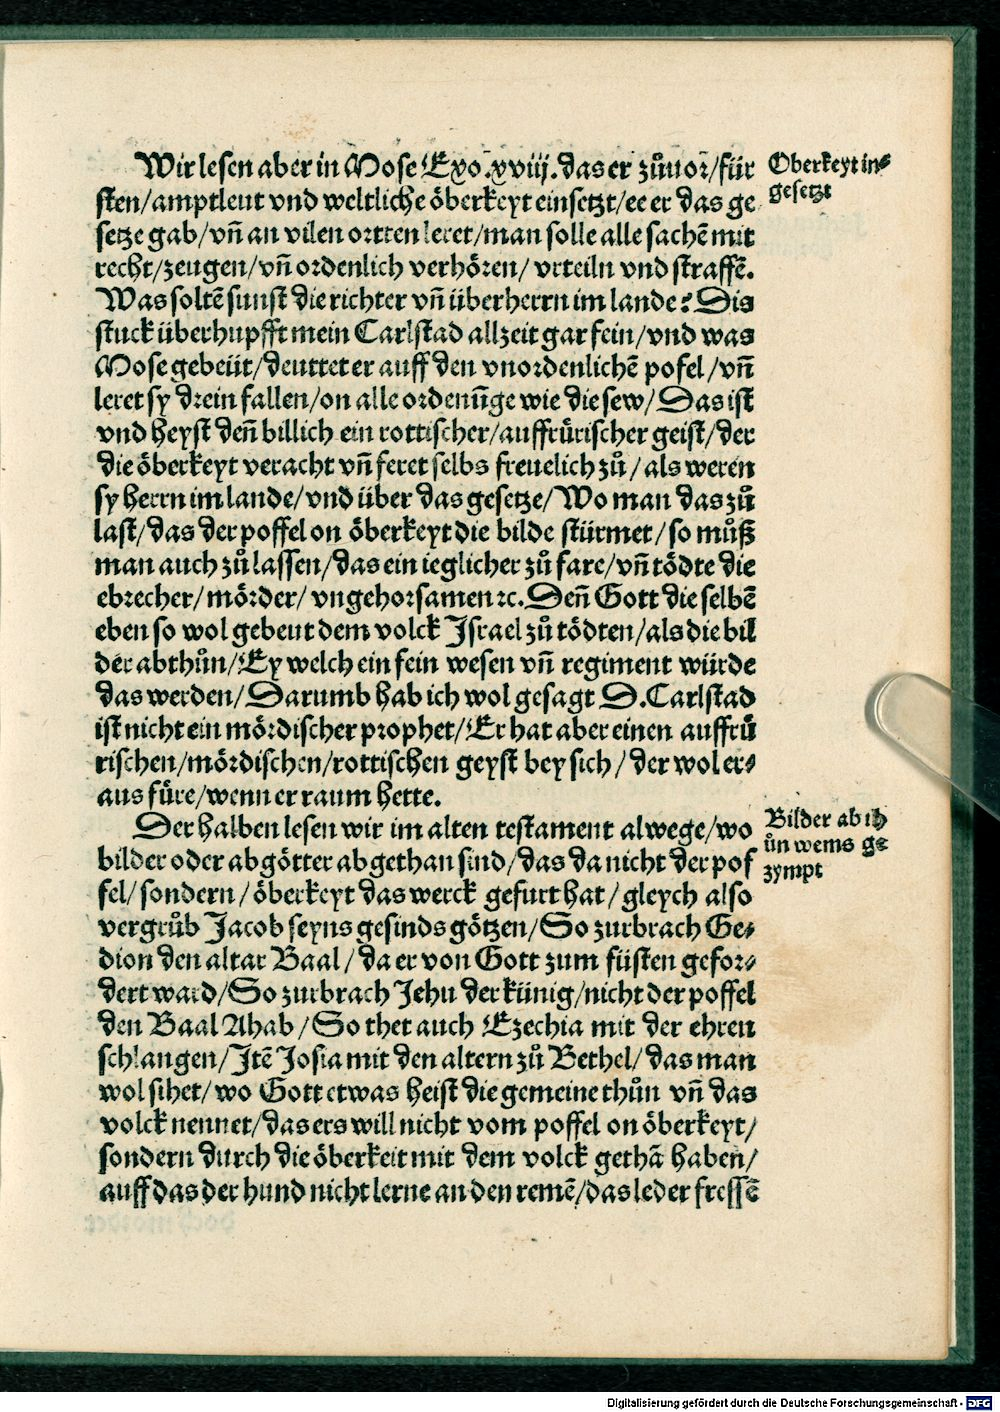 Wir lesen aber in Mose Exo.xviij.das er zůuor/für
sten/amptleut vnd weltliche öberkeyt einsetzt/ee er das ge
setze gab/vñ an vilen ortten leret/man solle alle sachẽ mit
recht/zeugen/vñ ordenlich verhören/ vrteiln vnd straffẽ.
Was soltẽ sunst die richter vñ überherrn im lande? Dis
stuck überhupfft mein Carlstad allzeit gar fein/vnd was
Mose gebeüt/deuttet er auff den vnordenlichẽ pofel/vñ
leret sy drein fallen/on alle ordenũge wie die sew/Das ist
vnd heyst deñ billich ein rottischer/auffrürischer geist/der
die öberkeyt veracht vñ feret selbs freuelich zů/als weren
sy herrn im lande/vnd über das gesetze/Wo man das zů
last/das der poffel on öberkeyt die bilde stürmet/so můß
man auch zů lassen/das ein ieglicher zů fare/vñ tödte die
ebrecher/mörder/vngehorsamen ꝛc. Deñ Gott die selbẽ
eben so wol gebeut dem volck Israel zů tödten/als die bil
der abthůn/Ey welch ein fein wesen vñ regiment würde
das werden/Darumb hab ich wol gesagt D.Carlstad
ist nicht ein mördischer prophet/Er hat aber einen auffrü
rischen/mördischen/rottischen geyst bey sich/der wol er⸗
aus füre/wenn er raum hette.
Der halben lesen wir im alten testament alwege/wo
bilder oder abgötter abgethan sind/das da nicht der pof
fel/sondern/öberkeyt das werck gefurt hat/gleych also
vergrůb Jacob seyns gesinds götzen/So zurbrach Ge⸗
dion den altar Baal/da er von Gott zum füsten gefor⸗
dert ward/So zurbrach Jehu der künig/nicht der poffel
den Baal Ahab/So thet auch Ezechia mit der ehren
schlangen/Itẽ Josia mit den altern zů Bethel/das man
wol sihet/wo Gott etwas heist die gemeine thůn vñ das
volck nennet/das ers will nicht vom poffel on öberkeyt/
sondern durch die öberkeit mit dem volck gethã haben/
auff das der hund nicht lerne an den remẽ/das leder fressẽ
Oberkeyt in⸗
gesetzt
Bilder ab th
ůn wems ge
zympt
Digitalisierung gefördert durch die Deutsche Forschungsgemeinschaft - DFG